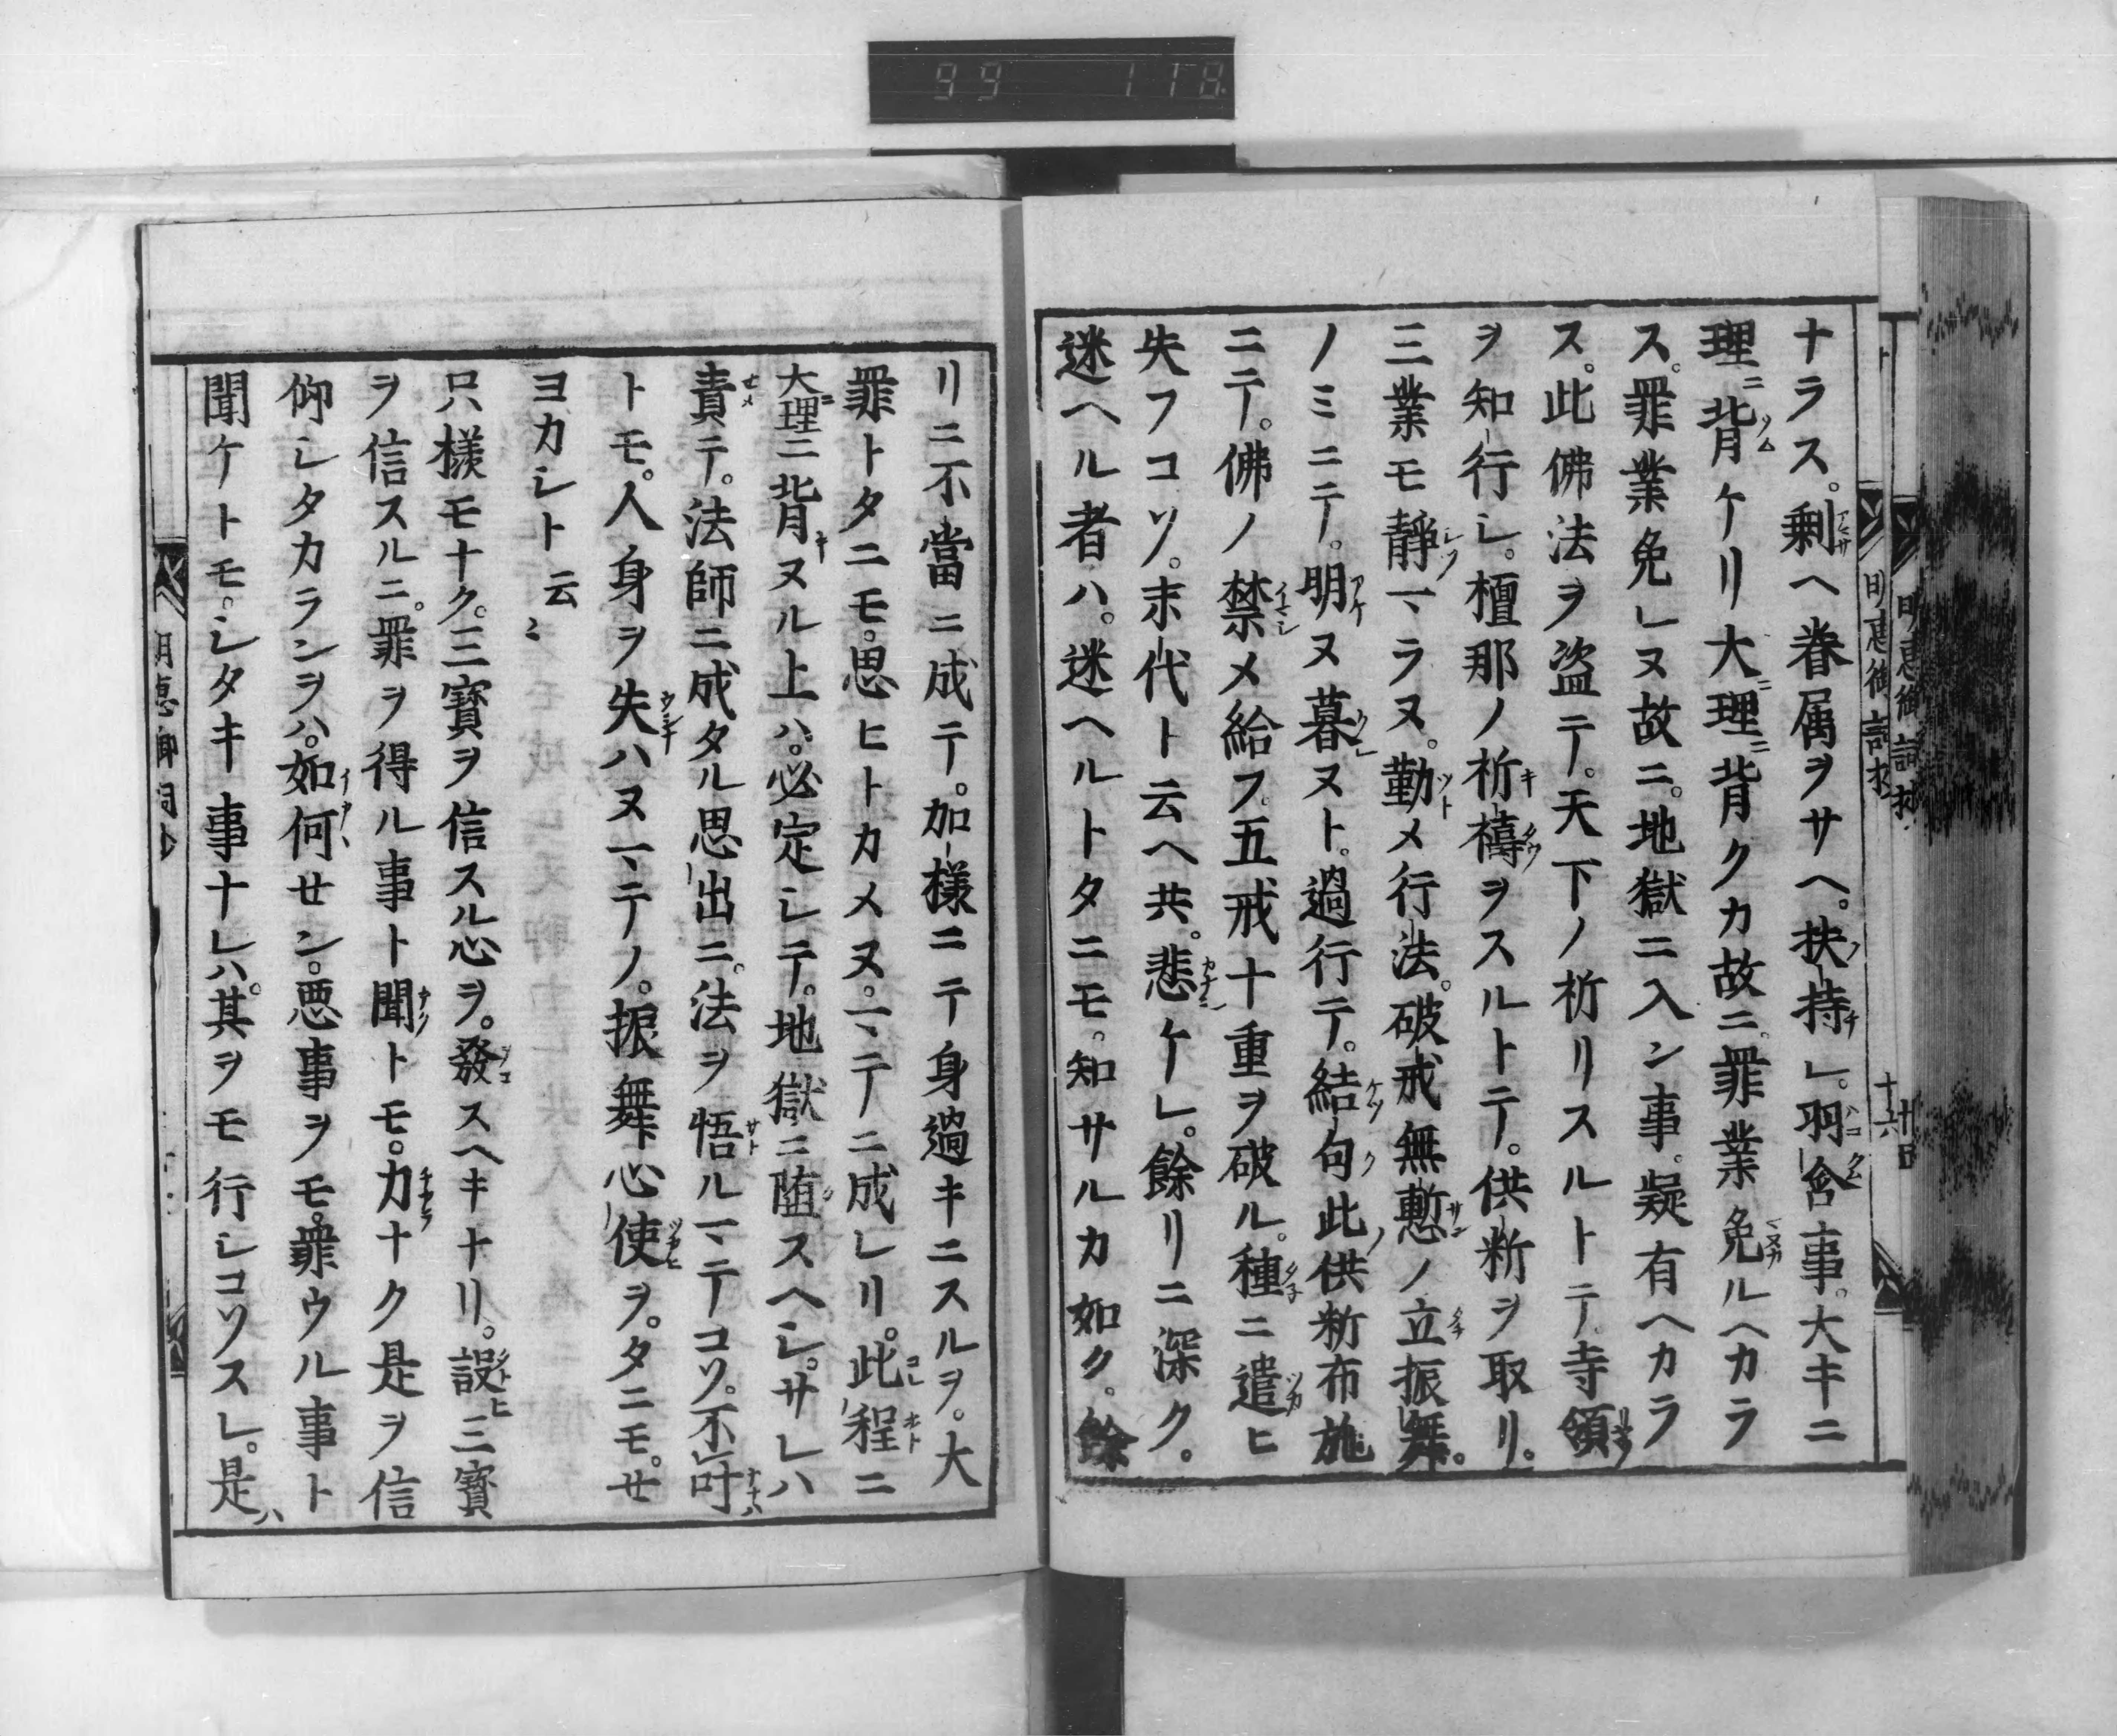 99 118
ナラス。剰ヘ眷属ヲサヘ。扶持シ。羽含事。大キニ
理ニ背ケリ大理ニ背クカ故ニ。罪業免ルヘカラ
ス。罪業免レヌ故ニ。地獄ニ入ン事。疑有ヘカラ
ス。此佛法ヲ盗テ。天下ノ祈リスルトテ。寺領
ヲ知行シ。檀那ノ祈禱ヲスルトテ。供新ヲ取リ。
三業モ靜マラヌ。勤メ行法。破戒無慙ノ立振舞。
ノミニテ。明ヌ暮ヌト。過行テ。結句此供新布施
ニテ。佛ノ禁メ給フ五戒十重ヲ破ル。種ニ遣ヒ
失フコソ。末代ト云ヘ共。悲ケレ。餘リニ深ク。
迷ヘル者ハ。迷ヘルトタニモ。知サルカ如ク。餘
リニ不當ニ成テ。加樣ニテ身過キニスルヲ。大
罪トタニモ。思ヒトカメヌマテニ成レリ。此程ニ
大理ニ背ヌル上ハ。必定シテ。地獄ニ堕スヘシ。サレハ
責テ。法師ニ成タル思出ニ。法ヲ悟ルマテコソ。不叶
トモ。人身ヲ失ハヌマテノ。振舞心使ヲ。タニモ。セ
ヨカシト云〻
只樣モナク。三寶ヲ信スル心ヲ。發スヘキナリ。設ヒ三寶
ヲ信スルニ。罪ヲ得ル事ト聞トモ。力ナク是ヲ信
仰シタカランヲハ。如何セン。悪事ヲモ。罪ウル事ト
聞ケトモ。シタキ事ナレハ。其ヲモ行シコソスレ。是ハ